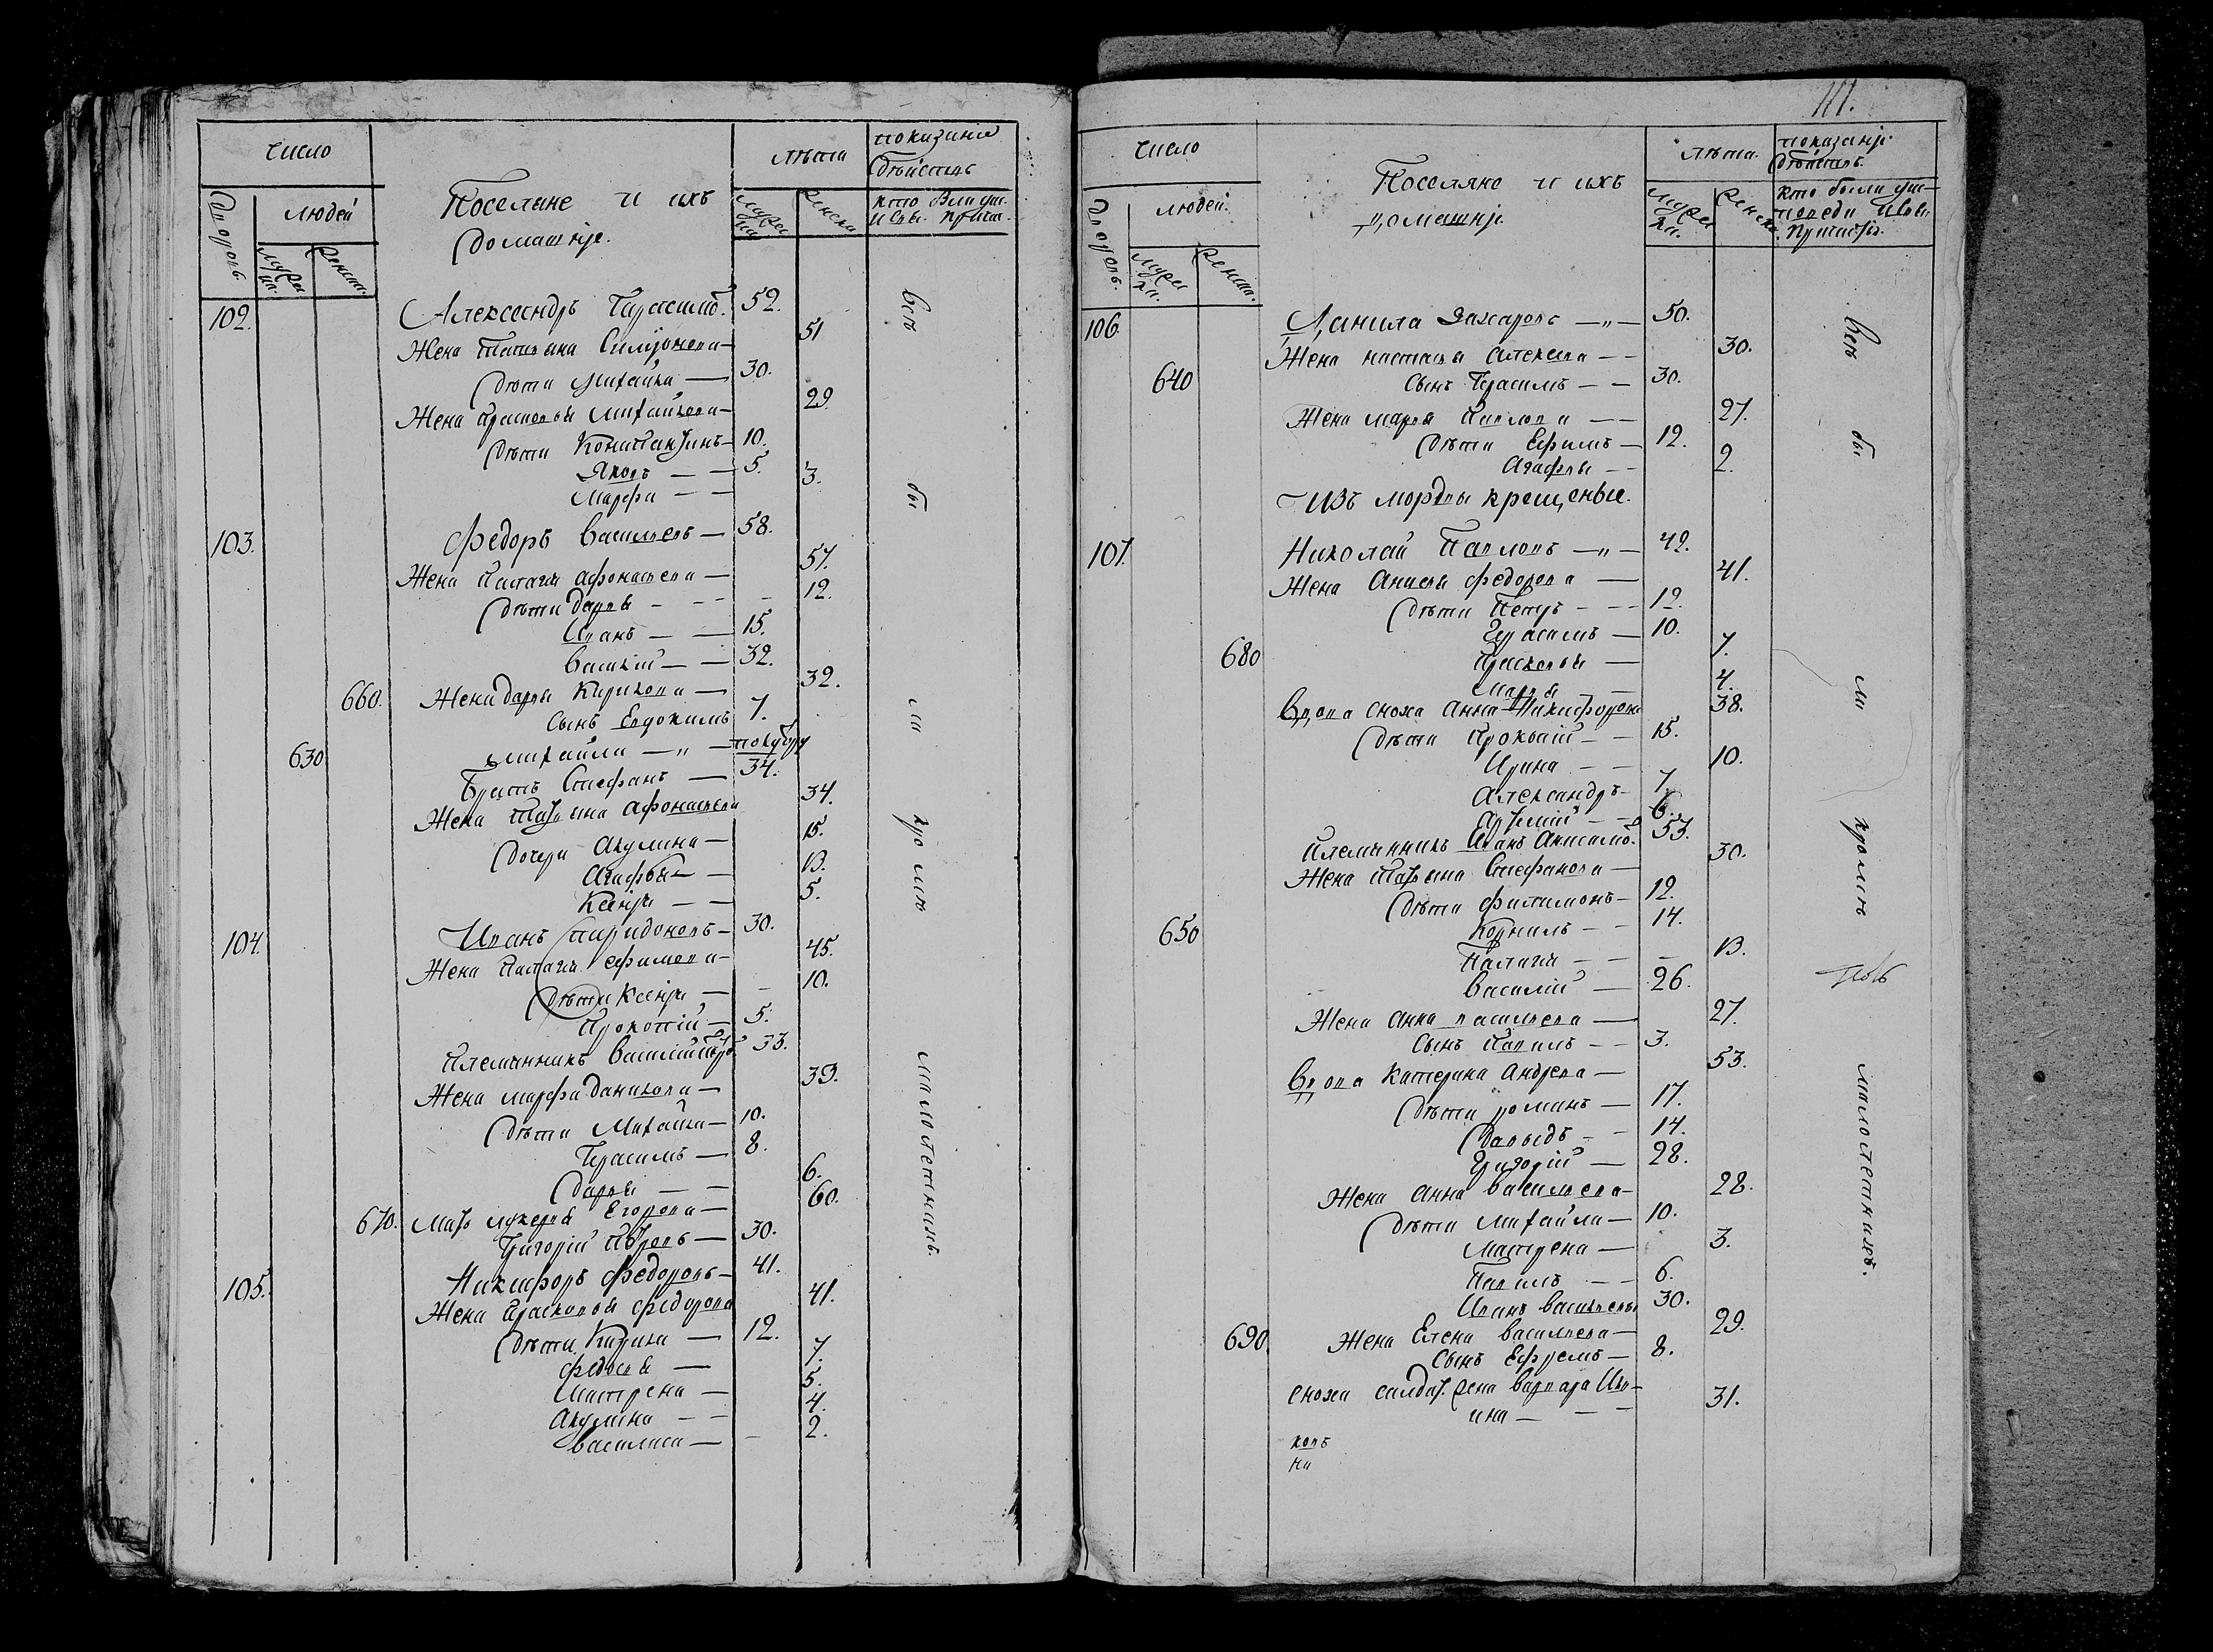 число
людей
дворовъ
мужеска.
женска.
Поселяне и ихъ
домашніе.
лѣта
мужеска
женска
показаніе
дѣйств
102.
Александръ Гарасимо. 52.
Жена Татьяна Симіонова— 51
дѣти Михайла — 30.
Жена прасковья Михайлова— 29
дѣти Константинъ— 10.
Яковъ — — 5.
Марфа — — 3.
103. Федоръ Васильевъ — 58.
Жена Палагея афонасьева — 57.
дѣти дарья — — — 12.
Иванъ — — 15.
Василій — — 32.
660. Жена дарья Кирилова — 32.
сынъ Евдокимъ 7.
630 михайла —"—
Братъ Стефанъ — 34.
Жена Татьяна афонасьева 34.
дочери Акулина — 15.
Агафья — 13.
Ксенія — — 5.
104. Иванъ Спиридоновъ— 30.
Жена Палагея ефимова— 45.
дѣти Ксенія — — 10.
Прокопій — 5.
племянникъ Василій 33.
Жена марфа данилова— 33.
дѣти Михайла— 10.
Герасимъ — 8.
дарья — — 6.
670. мать лукерья Егорова— 60.
Григорій — 30.
105. Никифоръ Федоровъ— 41.
Жена Прасковья федорова 41.
дѣти Кирила — 12.
федосья — 7.
Матрена — 5.
Акулина — — 4.
василиса — — 2.
всѣ
бы
ли
кромѣ
малолетнихъ.
111.
число
людей.
дворовъ.
мужеска.
женска.
Поселяне и ихъ
домашніе.
лѣта.
мужеска.
женска.
показаніе
дѣйств.
кто были у ис—
поведи и Св.
Причастія.
106 Данила Захаровъ —"— 50.
Жена настасья Алексеева — — 30.
640 сынъ Герасимъ — — 30.
Жена марья Павлова — — 27.
дѣти Ефимъ — 12.
Агафья — — 2.
Изъ мордвы крещеные.
107. Николай Павловъ —"— 42.
Жена Анисья федорова — 41.
дѣти Петръ — — — 12.
Герасимъ — 10.
680 прасковья — 7.
Марья — 4.
Вдова сноха Анна Никифорова 38.
дѣти Прокопій — — 15.
Ирина — — 10.
Александръ— 7.
Артемій — — 6.
племянникъ Иванъ Анисимо. 53.
Жена Татьяна Стефанова — 30.
дѣти филимонъ— 12.
650 Корнилъ — — 14.
Палагея — — — 13.
василій — 26.
Жена Анна васильева — 27.
сынъ Павилъ — — 3.
Вдова Катерина Андреева — 53.
дѣти романъ — 17.
давыдъ — — 14.
Григорій — 28.
Жена Анна васильева— 28.
дѣти михайла— 10.
Матрена — 3.
Павилъ — — 6.
Иванъ васильевъ 30.
690. Жена Елена васильева— 29.
сынъ Ефремъ— 8.
сноха салдат. жена варвара Ива—
ина — — — 31.
ковъ
на
всѣ
бы
ли
кромѣ
малолетнихъ.